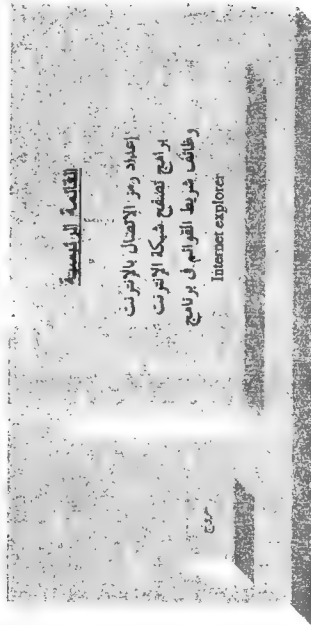 القائمة الرئيسية
إعداد رمز الاتصال بالإنترنت
برامج تصفح شبكة الإنترنت
وظائف شريط القوائم في برنامج
Internet explorer
خروج